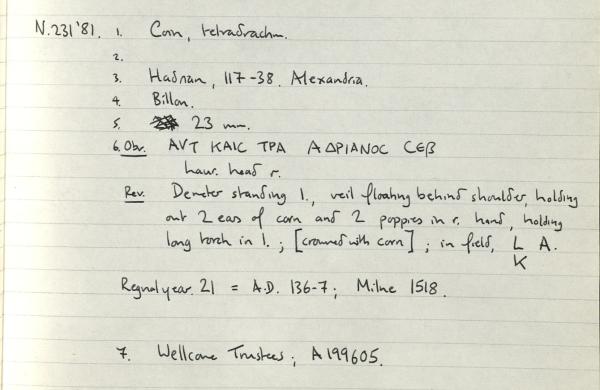 N.231'81. 1. Coin, tetradrachm.
2.
3. Hadrian, 117-38. Alexandria.
4. Billon.
5. 23 mm.
6. Obv. ΑVΤ ΚΑΙC ΤΡΑ ΑΔΡΙΑΝΟC CΕβ
laur. head r.
Rev. Demeter standing l., veil floating behind shoulder, holding
out 2 ears of corn and 2 poppies in r. hand, holding
long torch in l. ; [crowned with corn] ; in field, L A.
K
Regnal year 21 = A.D. 136-7; Milne 1518.
7. Wellcome Trustees; A199605.